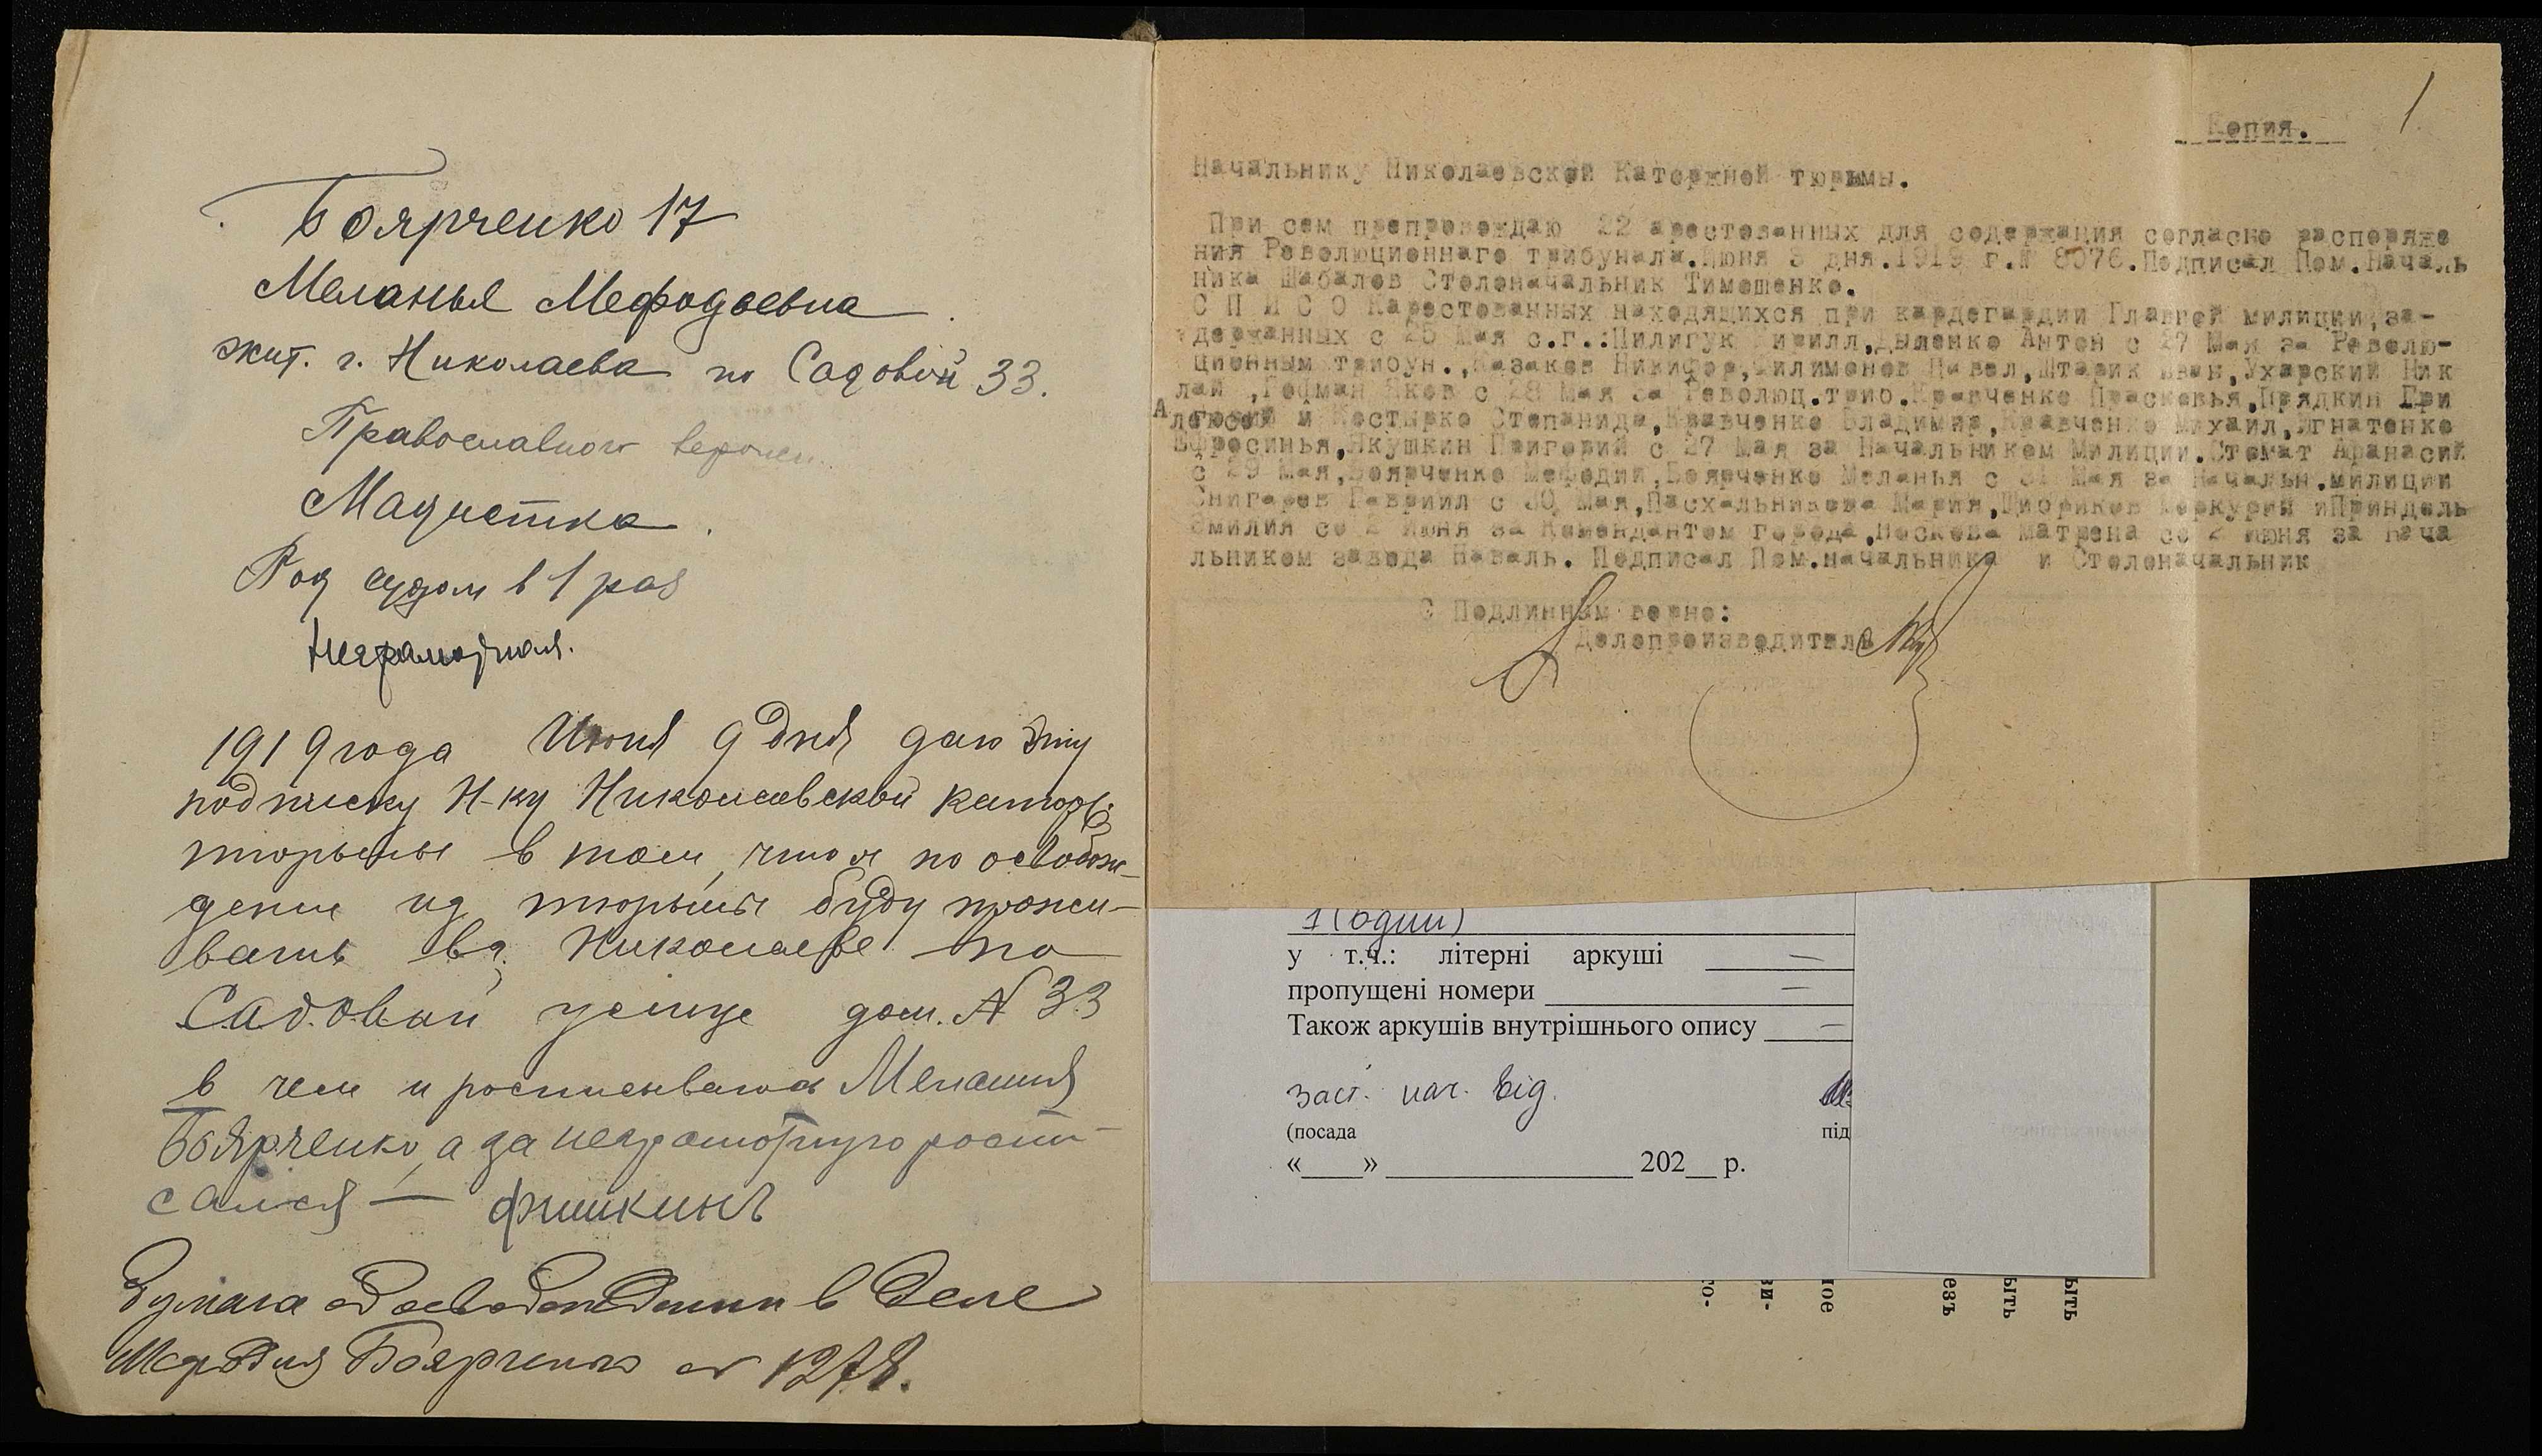 Боярченко 17
Меланья Мефодьевна
жит. г. Николаева по Садовой 33.
Православного вероисп.
Модистка.
Под судом в 1 раз
Неграмотная.
1919 года Июня 9 дня даю эту
подписку Н-ку Николаевской каторж.
тюрьмы в том, что я по освобож-
дении из тюрьмы буду прожи-
вать в г. Николаеве по
Садовый улице дом. № 33
в чем и росписываюсь Мелания
Боярченко, а за неграмотную роспи-
салса — Фишкинъ
Бумага об освобождении в деле
Мефодия Боярченко № 1278.
Копия. 1
Начальнику Николаевской Каторжной тюрьмы.
При сем препровождаю 22 арестованных для содержания согласно распоряже
ния Революционнаго трибунала.Июня 3 дня.1919 г.№ 8076.Подписал Пом.Началь
ника Шабалов Столоначальник Тимошенко.
С П И С О Карестованных находящихся при кардегардии Главной милиции,за-
держанных с 25 Мая с.г.:Пилипук Кирилл,Дыленко Антон с 27 Мая за Револю-
ционным трибун.,Казаков Никифор,Филимонов Павел,Штарик Иван,Ухарский Ник
лай ,Гофман Яков с 28 Мая за Революц.трио.Кравченко Прасковья,Прядкин Гри
Алексей и Костырко Степанида,Кравченко Владимир,Кравченко Михаил,Игнатенко
Ефросинья,Якушкин Григорий с 27 Мая за Начальником Милиции.Стомат Афанасий
с 29 Мая,Боярченко Мефодий,Боярченко Меланья с 31 Мая за Начальн.милиции
Снигарев Гавриил с 30 Мая,Пасхальникова Мария,Циориков Меркурий иПриндель
Эмилия со 2 Июня за Комендантом города,Носкова Матрена со 2 Июня за Нача
льником завода Наваль. Подписал Пом.начальника и Столоначальник
С Подлинным верно:
Делопроизводитель
1 (один)
у т.ч.: літерні аркуші —
пропущені номери —
Також аркушів внутрішнього опису —
заст. нач. від.
(посада під
«____» ____ 202__ р.
то-
ви-
ное
езъ
ыть
ыть